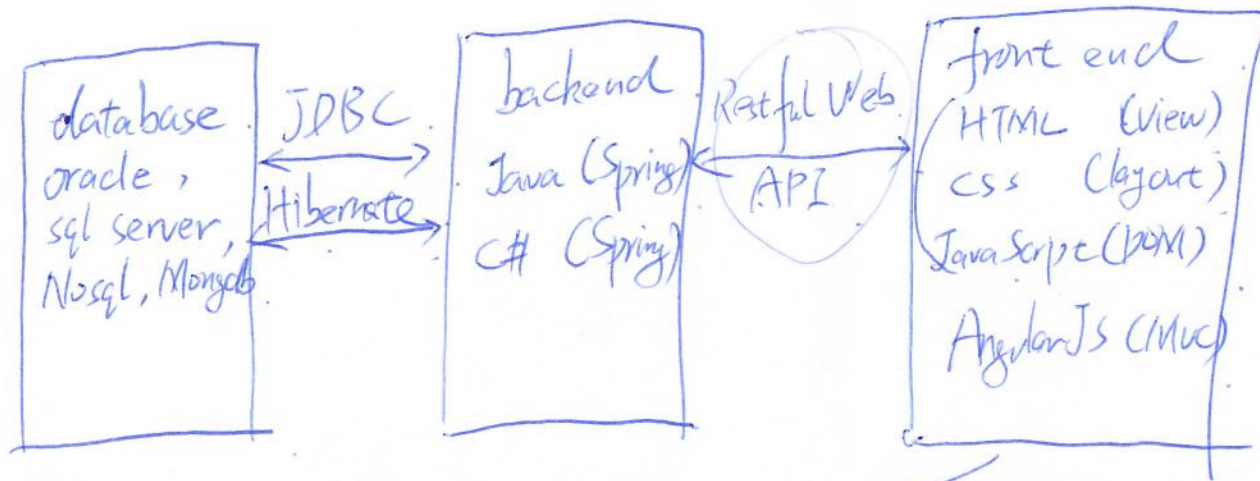 database
oracle,
sql server,
Nosql, Mongdb
JDBC
Hibernate
backend
Java (Spring)
C# (Spring)
Restful Web
API
front end
HTML (View)
css (layout)
JavaScript (DOM)
AngularJS (MVC)